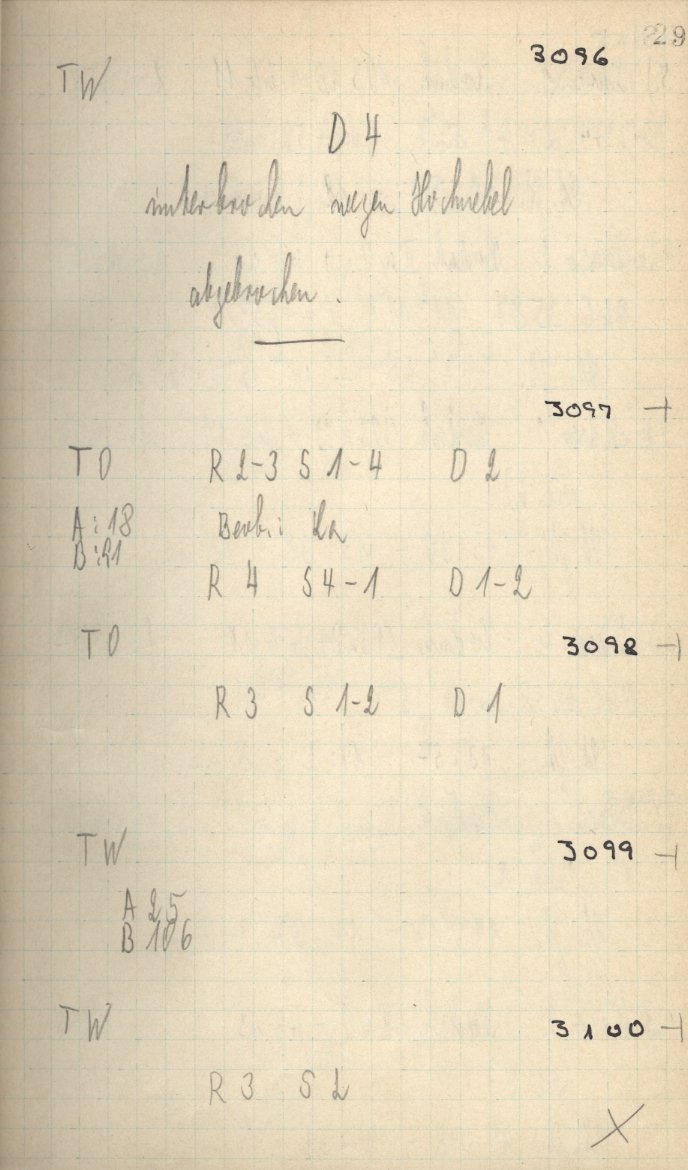 229
3096
TW
D 4
unterbrochen wegen Hochnebel
abgebrochen.
3097
TO R 2-3 S 1-4 D 2
A: 18 Beob.:
B: 21
R 4 S 4-1 D 1-2
TO 3098
R 3 S 1-2 D 1
TW 3099
A 25
B 106
TW 3100
R 3 S 2
X